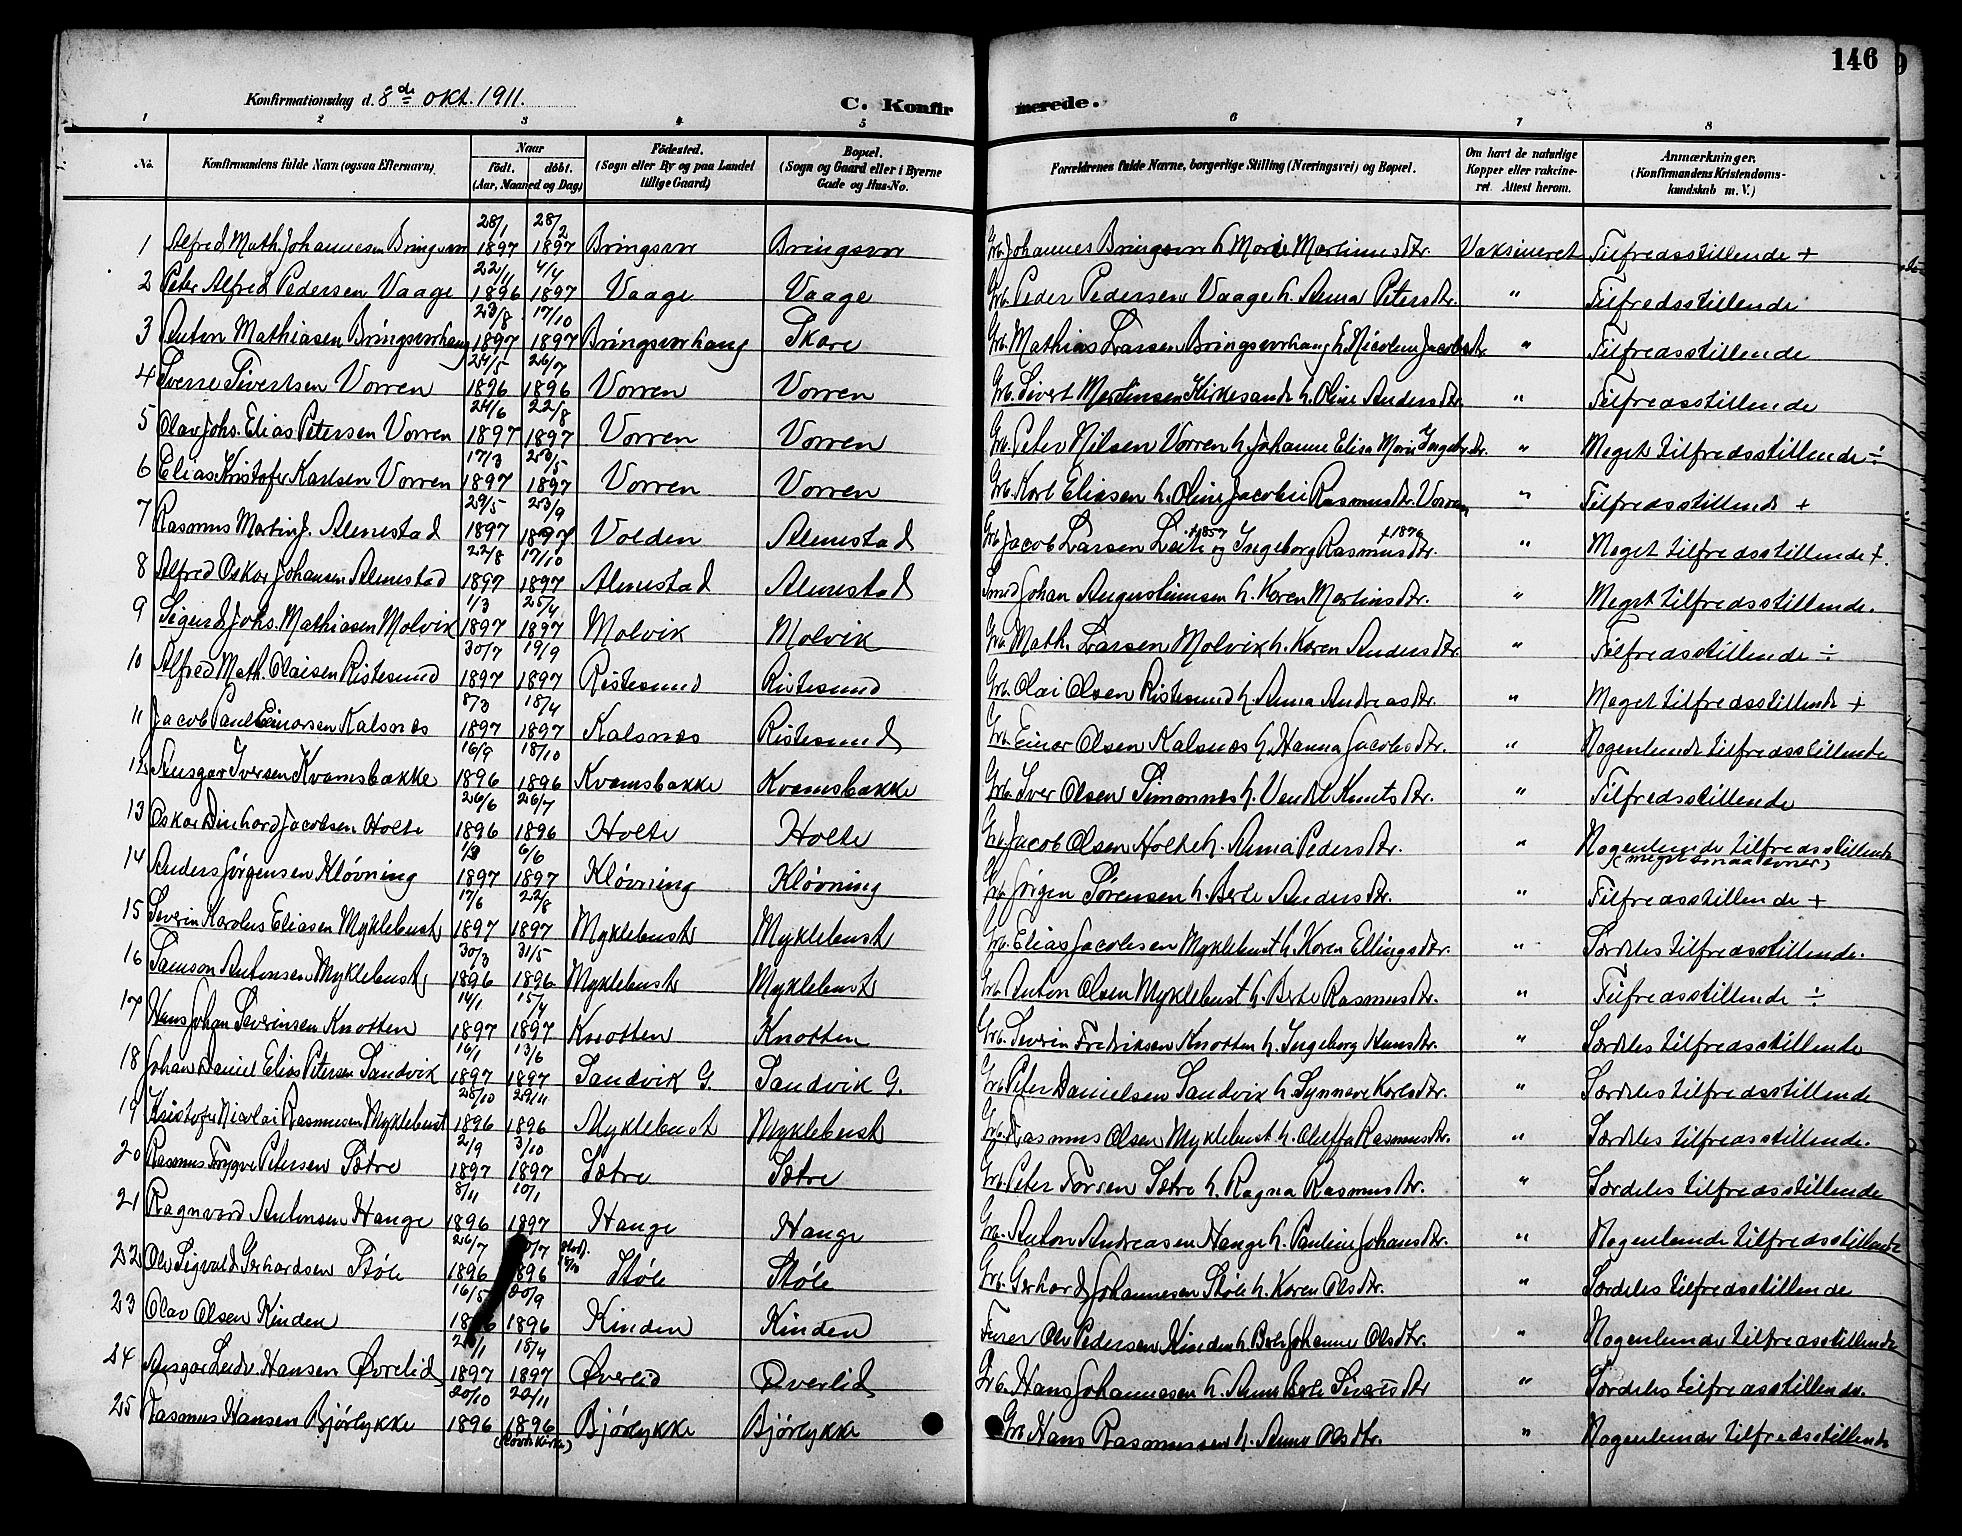 146
Konfirmationsdag d. 8de okt. 1911. C. Konfirmerede.
1 2 3 4 5 6 7 8
No. Konfirmandens fulde Navn (ogsaa Efternavn). Naar født. døbt. (Aar, Maaned og Dag) Fødested. (Sogn eller By og paa Landet tillige Gaard) Bopæl. (Sogn og Gaard eller i Byerne Gade og Hus-No. Forældrenes fulde Navne, borgerlige Stilling (Næringsvei) og Bopæl. Om havt de naturlige Kopper eller vakcineret. Attest herom. Anmærkninger. (Konfirmandens Kristendomskundskab m. V.)
1 Alfred Math. Johannesen Bringsvor 28/1 1897 28/2 1897 Bringsvor Bringsvor Grb. Johannes Bringsvor h. Marie Martinusdtr. Vaksineret Tilfredsstillende +
2 Peter Alfred Pedersen Vaage 22/11 1896 4/4 1897 Vaage Vaage Grb. Peder Pedersen Vaage h. Anna Petersdtr. " Tilfredsstillende
3 Anton Mathiasen Bringsvorhaug 23/8 1897 17/10 1897 Bringsvorhaug Skare Grb. Mathias Larsen Bringsvorhaug h. Nicoline Jacobsdtr. " Tilfredsstillende
4 Sverre Sivertsen Vorren 24/5 1896 26/7 1896 Vorren Vorren Grb. Sivert Martinsen Kirkesande h. Oline Andersdtr. " Tilfredsstillende
5 Olav Johs. Elias Petersen Vorren 24/6 1897 22/8 1897 Vorren Vorren Grb. Peter Nilsen Vorren h. Johanne Elisa Marie Ingebr.dtr. " Meget tilfredsstillende ÷
6 Elias Kristofer Karlsen Vorren 17/3 1897 23/5 1897 Vorren Vorren Grb. Karl Eliasen h. Oline Jacobii Rasmusdtr. Vorren " Tilfredsstillende +
7 Rasmus Martin J. Almestad 29/5 1897 23/9 1897 Volden Almestad Grb. Jacob Larsen Leite f. 1857 og Ingeborg Rasmusdtr. " Meget tilfredsstillende +.
8 Alfred Oskar Johansen Almestad 22/8 1897 17/10 1897 Almestad Almestad Smed Johan Augustinusen h. Karen Martinsdtr. " Meget tilfredsstillende.
9 Sigurd Johs. Mathiasen Molvik 1/3 1897 25/4 1897 Molvik Molvik Grb. Math. Larsen Molvik h. Karen Andersdtr. " Tilfredsstillende ÷
10 Alfred Math. Olaisen Ristesund 30/7 1897 19/9 1897 Ristesund Ristesund Grb. Olai Olsen Ristesund h. Anna Andreasdtr. " Meget tilfredsstillende +
11 Jacob Paul Einarsen Kalsnæs 8/3 1897 18/4 1897 Kalsnæs Ristesund Grb. Einar Olsen Kalsnæs h. Hanna Jacobsdtr. " Nogenlunde tilfredsstillende
12 Ansgar Iversen Kvamsbakke 16/9 1896 18/10 1896 Kvamsbakke Kvamsbakke Grb. Iver Olsen Simonnes h. Vendel Knutsdtr. " Tilfredsstillende
13 Oskar Dinhard Jacobsen Holte 26/6 1896 26/7 1896 Holte Holte Grb. Jacob Olsen Holte h. Anna Pedersdtr. " Nogenlunde tilfredsstillende (meget smaa evner)
14 Anders Jørgensen Kløvning 1/3 1897 6/6 1897 Kløvning Kløvning Grb. Jørgen Sørensen h. Berte Andersdtr. " Tilfredsstillende +
15 Severin Karolus Eliasen Myklebust 17/6 1897 22/8 1897 Myklebust Myklebust Grb. Elias Jacobsen Myklebust h. Karen Ellingsdtr. " Særdeles tilfredsstillende.
16 Samson Antonsen Myklebust 30/3 1896 31/5 1896 Myklebust Myklebust Grb. Anton Olsen Myklebust h. Berte Rasmusdtr. " Tilfredsstillende ÷
17 Hans Johan Severinsen Knotten 14/1 1897 15/4 1897 Knotten Knotten Grb. Severin Fredriksen Knotten h. Ingeborg Hansdtr. " Særdeles tilfredsstillende
18 Johan Daniel Elias Petersen Sandvik 16/1 1897 13/6 1897 Sandvik G. Sandvik G. Grb. Peter Danielsen Sandvik h. Synneve Karlsdtr. " Særdeles tilfredsstillende
19 Kristofer Nicolai Rasmussen Myklebust 25/10 1896 29/11 1896 Myklebust Myklebust Grb. Rasmus Olsen Myklebust h. Oleffa Rasmusdtr. " Særdeles tilfredsstillende.
20 Rasmus Trygve Petersen Sætre 2/9 1897 3/10 1897 Sætre Sætre Grb. Peter Larsen Sætre h. Ragna Rasmusdtr. " Særdeles tilfredsstillende
21 Ragnvard Antonsen Hauge 8/11 1896 10/1 1897 Hauge Hauge Grb. Anton Andreasen Hauge h. Pauline Johansdtr. " Nogenlunde tilfredsstillende
22 Ole Sigvald Gerhardsen Støle 26/7 1896 1896 Støle Støle Grb. Gerhard Johannesen Støle h. Karen Olsdtr. " Særdeles tilfredsstillende
23 Olav Olsen Kinden 16/5 20/9 1896 Kinden Kinden Ole Pedersen Kinden h. Berte Johanne Olsdtr. " Nogenlunde tilfredsstillende
24 Ansgar Hansen Øvrelid 1897 18/4 1897 Øverlid Øverlid Grb. Hans Johannesen h. Anne Berte Sivertsdtr " Særdeles tilfredsstillende.
25 Rasmus Hansen Bjørlykke 20/10 1896 22/11 1896 (Rovde Kirke) Bjørlykke Bjørlykke Grb. Hans Rasmussen h. Anne Olsdtr. " Nogenlunde tilfredsstillende